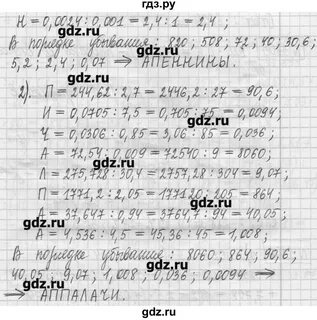 Н = 0,0024 : 0,001 = 2,4 : 1 = 2,4 ;
В порядке убывания : 820 ; 508 ; 72 ; 40 ; 30,6 ;
5,2 ; 2,4 ; 0,07 → АПЕННИНЫ.
2). П = 244,62 : 2,7 = 2446,2 : 27 = 90,6 ;
И = 0,0705 : 7,5 = 0,705 : 75 = 0,0094 ;
Ч = 0,0306 : 0,85 = 3,06 : 85 = 0,036 ;
А = 72,54 : 0,009 = 72540 : 9 = 8060 ;
Л = 275,728 : 30,4 = 2757,28 : 304 = 9,07 ;
П = 1771,2 : 2,05 = 177120 : 205 = 864 ;
А = 37,647 : 0,94 = 3764,7 : 94 = 40,05 ;
А = 4,536 : 4,5 = 45,36 : 45 = 1,008 ;
В порядке убывания : 8060 ; 864 ; 90,6 ;
40,05 ; 9,07 ; 1,008 ; 0,036 ; 0,0094 →
→ АППАЛАЧИ.
gdz.ru
gdz.ru
gdz.ru
gdz.ru
gdz.ru
gdz.ru
gdz.ru
gdz.ru